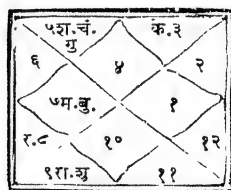 ५श.चं.
गु
क.३
६
४
२
७म.बु.
१
र.८
१०
१२
९रा.शु
११